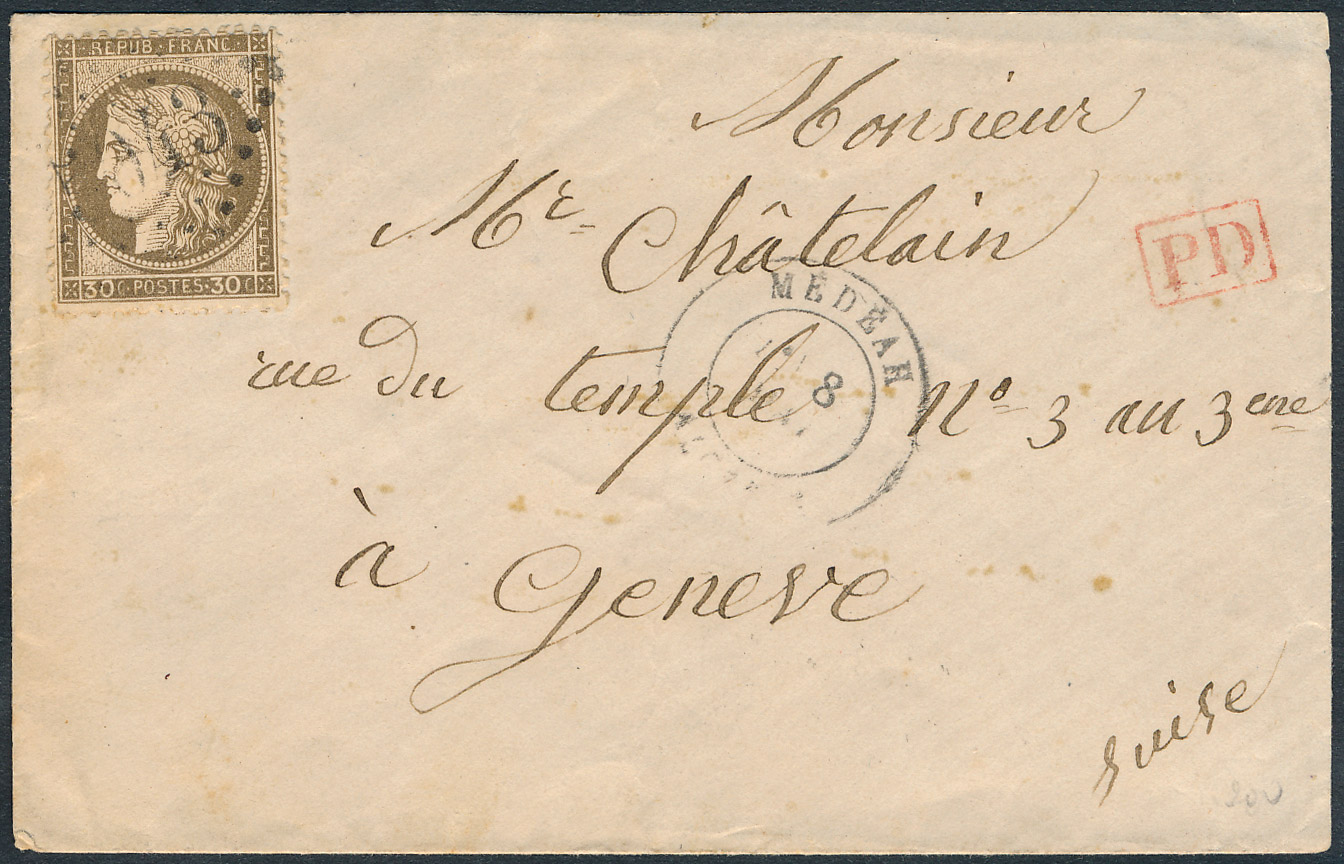 REPUB · FRANC ·
30 C · POSTES · 30 C
Monsieur
Mr Châtelain
PD
MÉDÉAH
8
rue du temple No 3 au 3eme
à Geneve
suise